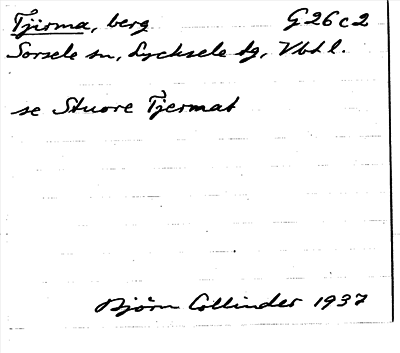 Tjirma, berg G26c2
Sorsele sn, Lycksele tg, Vbtl.
se Stuore Tjermat
Björn Collinder 1937